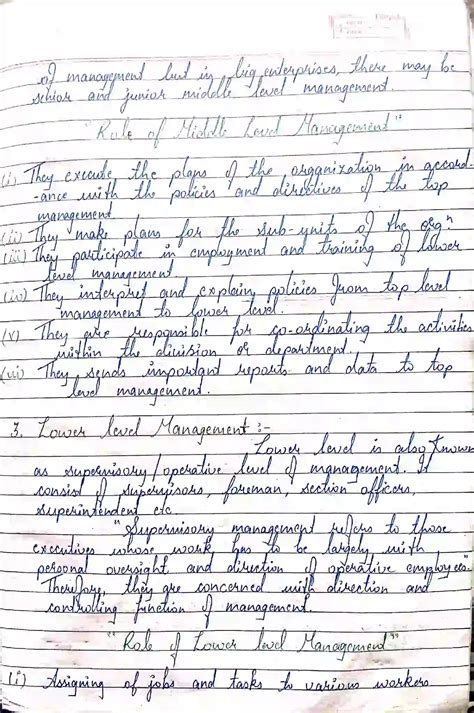 of management but in big enterprises, there may be
senior and junior middle level management.
"Role of Middle Level Management"
(i) They execute the plans of the organization in accord-
-ance with the policies and directives of the top
management.
(ii) They make plans for the sub-units of the orgⁿ
(iii) They participate in employment and training of lower
level management
(iv) They interpret and explain policies from top level
management to lower level.
(v) They are responsible for co-ordinating the activities
within the division or department.
(vi) They sends important reports and data to top
level management.
3. Lower level Management :-
Lower level is also known
as supervisory/operative level of management. It
consist of supervisors, foreman, section officers,
superintendent etc.
"Supervisory management refers to those
executives whose work has to be largely with
personal oversight and direction of operative employees."
Therefore, they are concerned with direction and
controlling function of management.
"Role of Lower level Management"
(i) Assigning of jobs and tasks to various workers